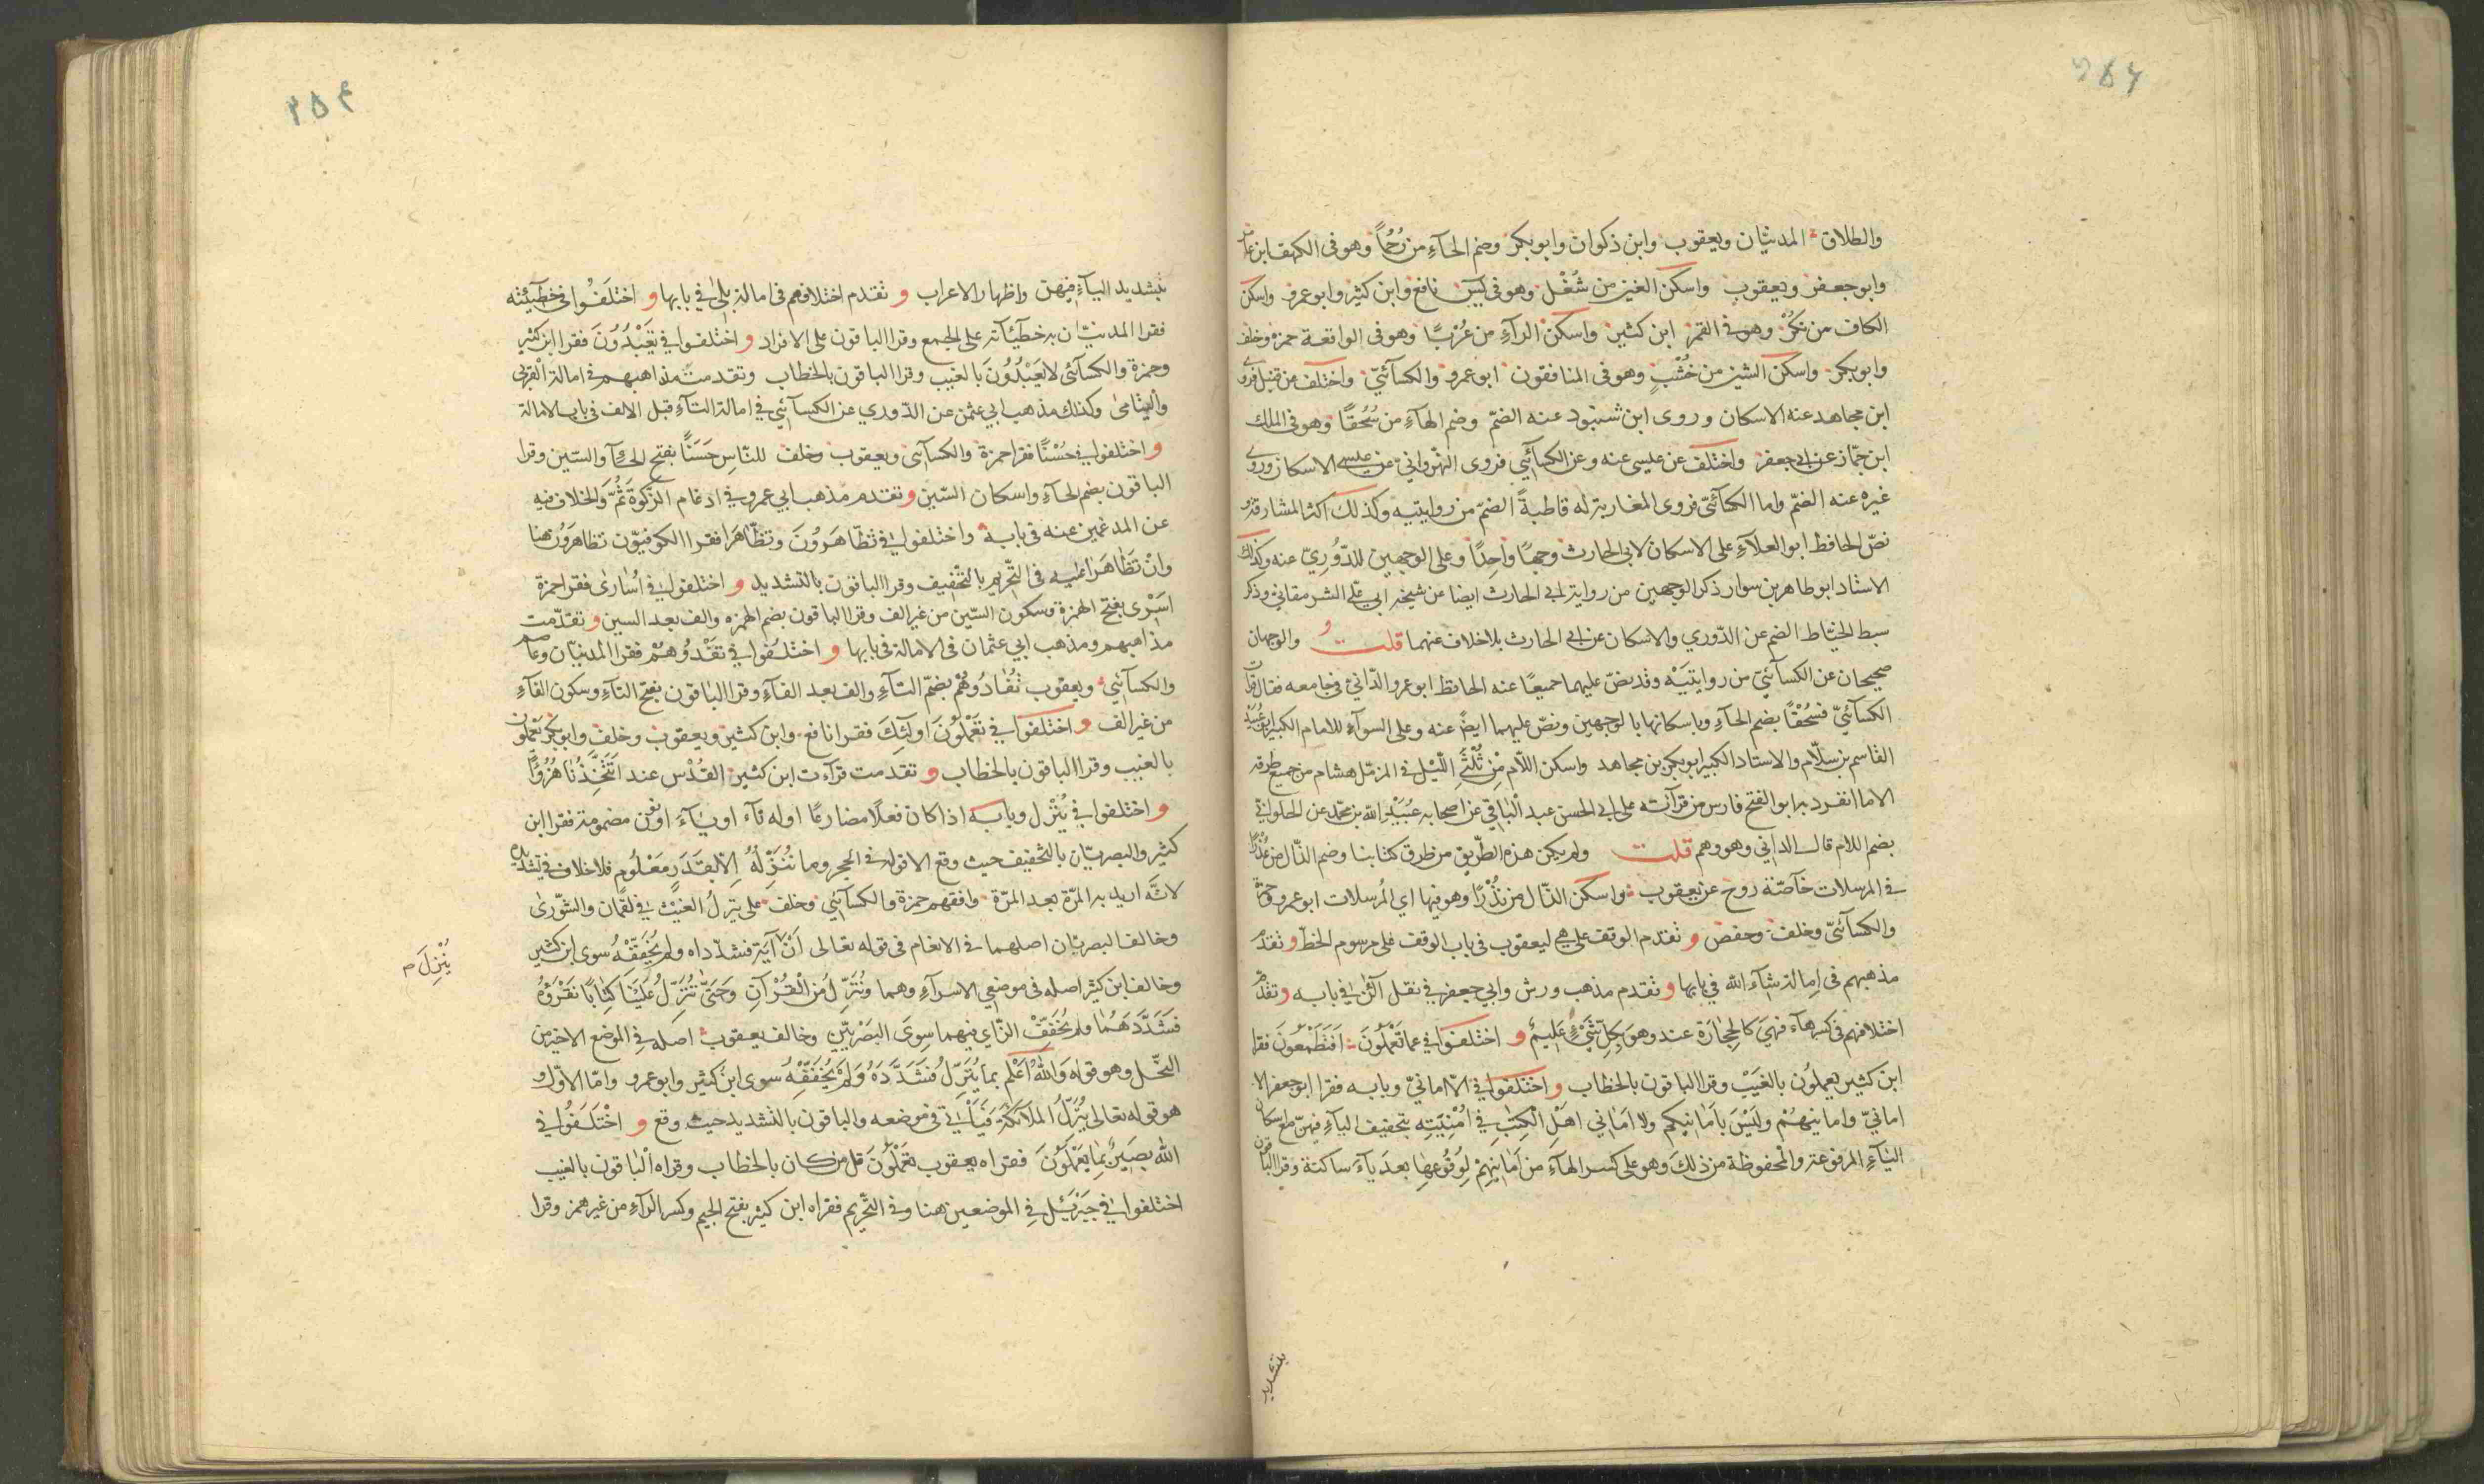 والطلاق المدنيّان ويعقوب وابن ذكوان وابو بكر وضم الحآءِ من رُحُماً وهو فى الكهف ابن عامر
وابو جعفر ويعقوب واسكن الغين من شُغْل وهو فى يس نافع وابن كثير وابو عمرو واسكن
الكاف من نكُرْ وهو فى القمر ابن كثير واسكن الرآءِ من عُرُبًا وهو فى الواقعة حمزة وخلف
وابو بكر واسكن الشين من خُشْبٍ وهو فى المنافقون ابو عمرو والكسآئيّ واختلف عن قنبل فروى
ابن مجاهد عنه الاسكان وروى ابن شنبوذ عنه الضمّ وضم الهآءِ من سُحُقًا وهو فى الملك
ابن جمّاز عن ابى جعفر واختلف عن عيسى عنه وعن الكسآئي فروى النهروانيّ عن عيسى الاسكان وروى
غيره عنه الضمّ واما الكسآئيّ فروى المغاربة له قاطبةً الضمّ من روايتيه وكذلك اكثر المشارقة و
نصّ الحافظ ابو العلآءِ على الاسكان لابى الحارث وجهًا واحِدًا وعلى الوجهين للدّوُرِيّ عنه وكذلك
الاستاد ابو طاهر بن سوار ذكر الوجهين من رواية لابى الحارث ايضا عن شيخه ابي علي الشرمقاني وذكر
سبط الخيّاط الضم عن الدّوري والاسكان عن ابى الحارث بلا خلاف عنهما قلت والوجهان
صحيحان عن الكسآئيّ من روايتيْه وقد نصّ عليهما جميعًا عنه الحافظ ابو عمرو الدّاني فى جامعه فقال قرأت
الكسآئيّ فسُحُقْاً بضم الحآءِ وباسكانها بالوجهين ونصّ عليهما ايضً عنه وعلى السوآء للامام الكبير ابو عُبَيْد
القاسم بن سلّام والاستاد الكبير ابو بكر بن مجاهد واسكن اللاّم مِنْ ثُلْثَىِ الّيْل فى المزمّل هشام من جميع طرقه
الا ما انفرد به ابو الفتح فارس من قرآئته على ابى الحسن عبد الْباقي عن اصحابه عُبَيْد الله بن محمّد عن الحلواني
بضم اللام قال الدانى وهو وهم قلت ولم يكن هذه الطّريق من طرق كتابنا وضم الذّال من عُذُرًا
فى المرسلات خآصّة روح عن يعقوب واسكن الذّال من نُذْرًا وهو فيها اي المُرسلات ابو عمرو وحمزة
والكسآئيّ وخلف وحفص و تقدم الوقف على هي ليعقوب فى باب الوقف على مرسوم الخطّ و تقدم
مذهبهم فى اِمالة شآءَ الله فى بابها و تقدم مذهب ورش وابي جعفر في نقل آلْئٰن في بابه و تقدّم
اختلافهم فى كسر هآءِ فهىَ كالحِجٰارَة عند وهوَ بكلِّ شَىْءٍ عَليمٌ و اختلفوا في عما تَعْمَلُونَ اَفَتَطْمَعُونَ فقرا
ابن كثير يعملوُن بالغَيَبْ وقرا الباقون بالخطاب و اختلفوا في الّا امانيّ وبابه فقرا ابو جعفر الا
امانيّ وامانيهُمْ ولَيْسَ باَمانيكم ولا امَاني اهَلِ الْكِتٰبِ فى اُمْنِيّتِه بتخفيف اليآءِ فيهنّ مع اسكان
اليآءِ المرفوعة والمخفوظة من ذلكَ وهو على كسر الهآءَ من اَمٰانيِهِمْ لِوُقُوعِهٰا بعدَ يآءَ ساكنة وقرا الباقون
بتشديد
۲۵۴
بتشديد اليآءِ فيهنّ واظهار الاعراب و تقدم اختلافهم فى امالة بلىٰ في بابها و اختلَفُوا فى خطٓيئته
فقرا المدنيّان به خطٓيئاته على الجمع وقرا الباقون على الافراد و اختلفوا في تَعْبُدُونَ فقرا ابن كثير
وحمزة والكسآئي لا يعَبُدُونَ بالغيب وقرا الباقون بالخطاب وتقدمت مذاهبهم في امالة الْقربى
والْيَتٰامىٰ وكذلك مذهب ابي عثمٰن عن الدّوري عن الكسآئيّ في امالة التآءِ قبل الالف فى باب الامالة
و اختلفوا في حُسْنًا فقرا حمزة والكسآئي ويعقوب وخلف للنّاسِ حَسَنًا بفتح الحآءِ والسّين وقرا
الباقون بضم الحآءِ واسكان السّين و تقدم مذهب ابي عمرو في ادغام الزّكوةَ ثُمَّ والخلاف فيه
عن المدغمين عنه فى بابه واختلفوا في تظّاهَرُونَ وتظّاهَرَا فقرا الكوفيّون تظاهَرُونَ هنا
وانْ تَظٰاهَرٰا عَلَيه فى التّحريم بالتخفيف وقرا الباقون بالتشديد و اختلفوا في اُسٰارىٰ فقرا حمزة
اَسْرٰى بفتح الهمزة وسكون السّين من غير الف وقرا الباقون بضم الهمزه والف بعد السين و تقدّمت
مذاهبهم ومذهب ابي عثمان فى الامالة فى بابها و اختلفوا في تفْدُوهُمْ فقرا المدنيّان وعاصم
والكسآئيّ ويعقوب تُفٰادُوهُمْ بضمّ التآءِ والف بعد الفآءِ وقرا الباقون بفتح التآءِ وسكون الفآءِ
من غير الف و اختلفوا في تعْمَلُونَ اولٓئِكَ فقرا نافع وابن كثير ويعقوب وخلف وابو بكر يَعْملون
بالغيب وقرا الباقون بالخطاب و تقدمت قرآءت ابن كثير القُدْس عند اتَتَّخِذُنا هُزُؤًا
و اختلفوا في يُنَزّل وبابه اذا كان فعلًا مضارعًا اوله تآء او يآءَ او نون مضمومة فقرا ابن
كثير والبصريّان بالتخفيف حيث وقع الا قوله فى الحجر وما نُنَزِّلُهُ اِلّا بقَدَرٍ مَعْلُومٍ فلا خلاف في تشديده
لانّه اريد به المرّة بعد المرّة وافقهم حمزة والكسآئي وخلف على يترلُ الغيث في لقمٰان والشّورىٰ
وخالف البصريّان اصلهما فى الانعام فى قوله تعالى اَنْ آيَة فشدّداه ولم يُخَفّفْهُ سوى ابن كثير
يُنْزِلَ م
وخالف ابن كثير اصله فى موضعي الاسرآءِ وهما ونُنَزّلُ مِنَ الْقُرْآنِ وَحَتّىٰ تُنَزِّلَ عَلَيْنٰا كِتٰابًا نَقْرَؤُهُ
فَشَدَّدَهُمٰا ولم يُخَفّفْ الزّاي فيهما سِوىَ البَصْريّين وخالف يعقوب اصله فى الموضع الاخير من
النّحل وهو قوله واللهُ اعْلَم بما يُنَزِّلُ فَشَدَّدَهُ وَلَمْ يُخَفّفْهُ سوى ابن كثير وابو عمرو وامّا الاوّل و
هو قوله تعالى يُنَزِّلُ الملآئكةَ فَيَأتي فى موضعه والباقون بالتشديد حيث وقع و اخْتَلَفوُا في
الله بصَيرٌ بمٰا يَعْمَلُونَ فقراه يعقوب تعْمَلُونَ قل من كان بالخطاب وقراه الْباقون بالغيب
اختلفوا في جبْريٓل فى الموضعين هنا وفى التّحريم فقراه ابن كثير بفتح الجيم وكسر الرآءِ من غير همز وقرا